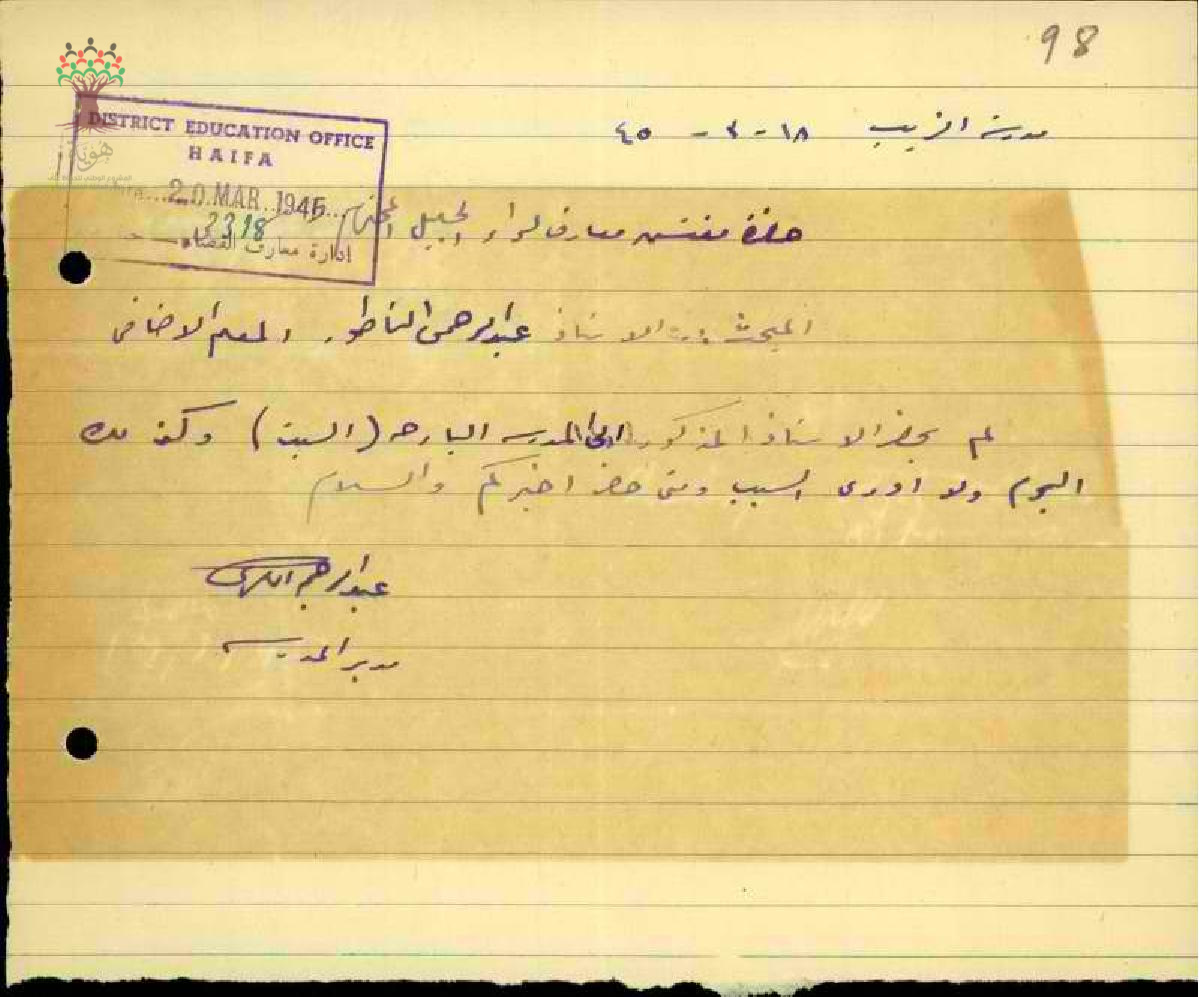 98
مدرسة الزيب ١٨-٣-٤٥
DISTRICT EDUCATION OFFICE
HAIFA
20 MAR 1945
3318
ادارة معارف القضاء
هوية
حضرة مفتش معارف لواء الجليل المحترم
المبحث عن الاستاذ عبد الرحمن الناطور المعلم الاضافي
لم يحضر الاستاذ المذكور الى المدرسه البارحه (السبت) وكذلك
اليوم ولا ادري السبب ومتى حضر اخبركم والسلام
عبد الرحيم
مدير المدرسه